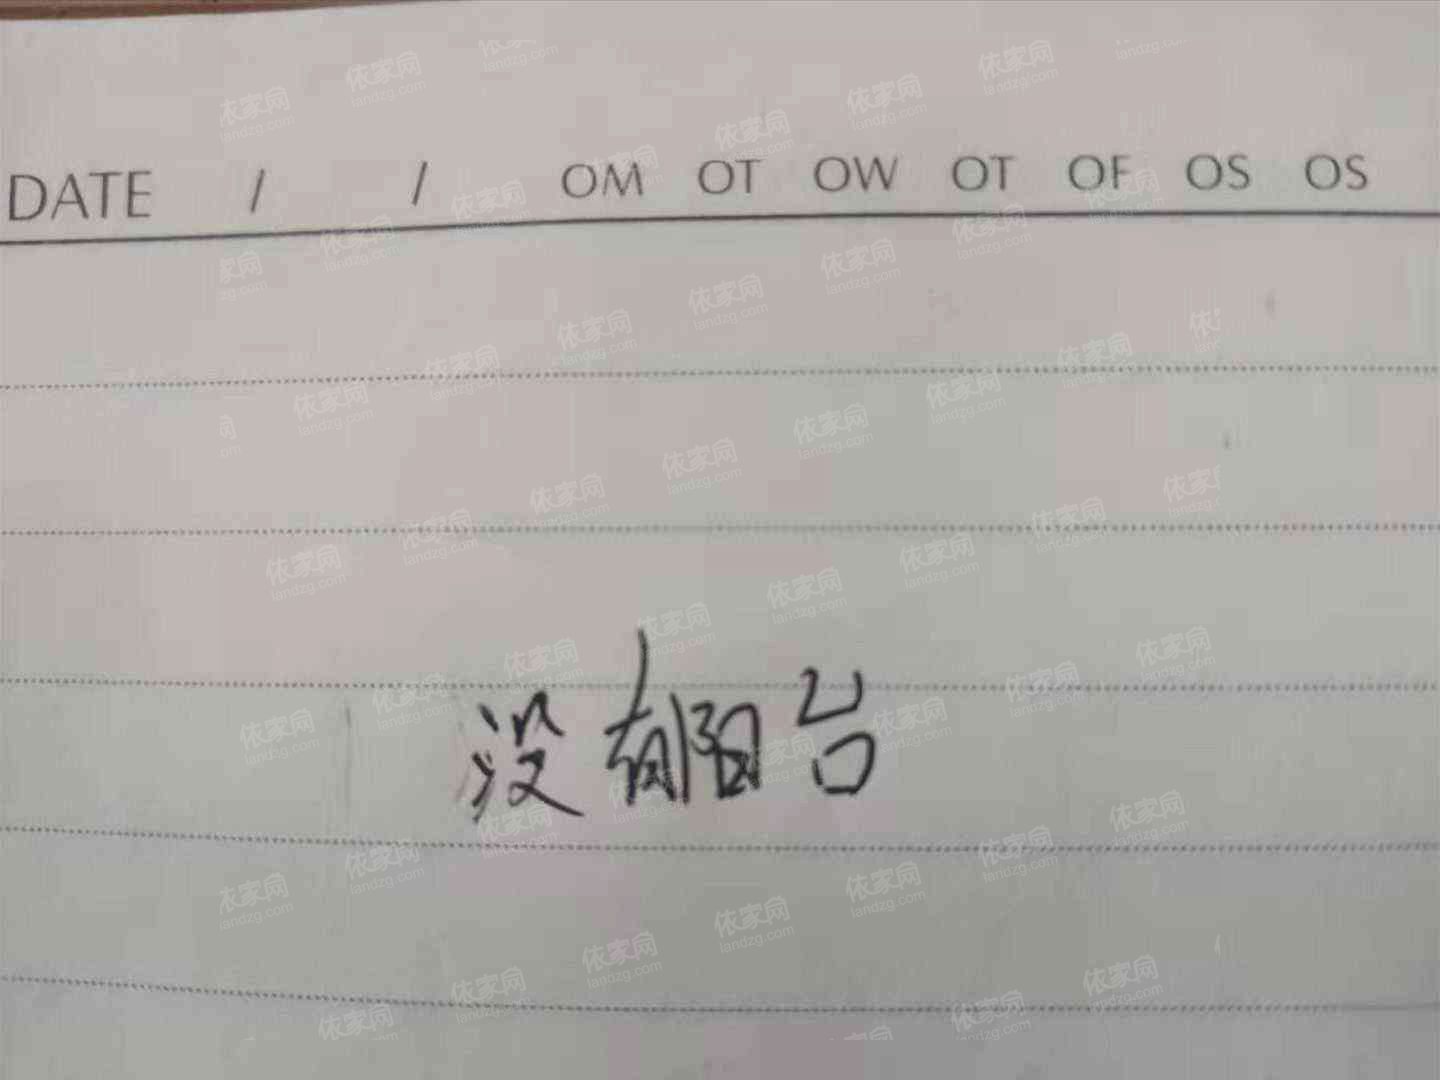 DATE / / OM OT OW OT OF OS OS
没有阳台
依家网
landzg.com